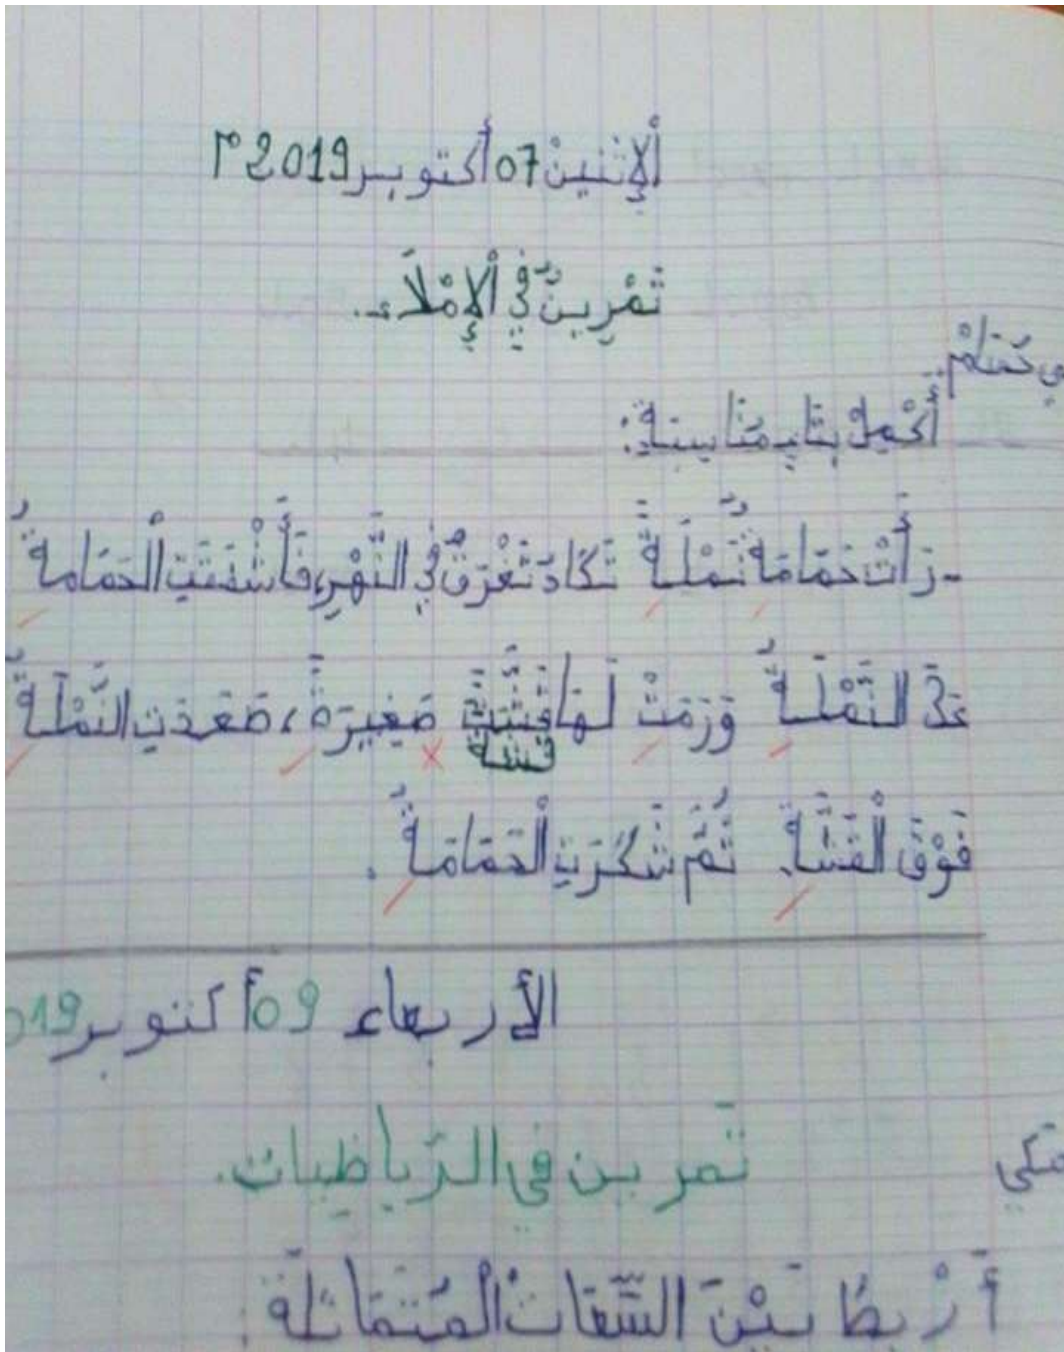 ألْإِثنينْ 07 أكتوبر 2019 م
تَمْرِينٌ فِي ألْإِمْلَاء.
أَكْمِلْ بِتَاءٍ مُنَاسِبَةٍ:
- رَأَتْ حَمَامَةٌ نَمْلَةً تَكَادُ تَغْرَقُ فِي النَّهْرِ، فَأَشْفَقَتِ الْحَمَامَةُ
عَلَى النَّمْلَةِ وَرَمَتْ لَهَا قَشَّتً قشة صَغِيرَةً، صَعَدَتِ النَّمْلَةُ
فَوْقَ الْقَشَّةِ. ثُمَّ شَكَرَتِ الْحَمَامَةُ.
الأربعاء 09 أكتوبر 019
تَمرين في الرّياظيات.
أَرْبِطُ بَيْنَ السِّقَاتْ الْمُتَمَاثِلَة: